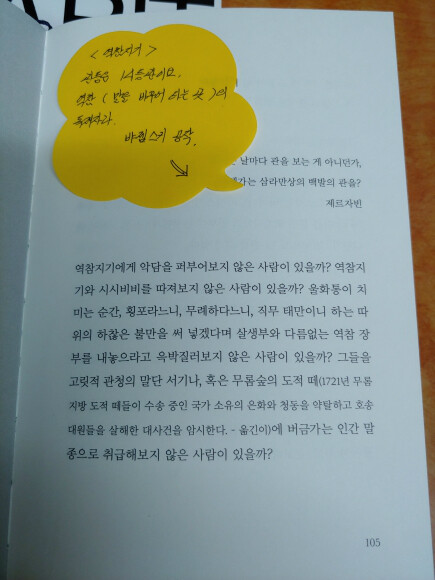 < 역참지기 >
관등은 14등관이요.
역참 ( 말을 바꾸어 타는 곳 )의
독재자라.
바젬스키 공작.
날마다 관을 보는 게 아니던가,
가는 삼라만상의 백발의 관을?
제르자빈
역참지기에게 악담을 퍼부어보지 않은 사람이 있을까? 역참지
기와 시시비비를 따져보지 않은 사람이 있을까? 울화통이 치
미는 순간, 횡포라느니, 무례하다느니, 직무 태만이니 하는 따
위의 하찮은 불만을 써 넣겠다며 살생부와 다름없는 역참 장
부를 내놓으라고 윽박질러보지 않은 사람이 있을까? 그들을
고릿적 관청의 말단 서기나, 혹은 무롬숲의 도적 떼(1721년 무롬
지방 도적 떼들이 수송 중인 국가 소유의 은화와 청동을 약탈하고 호송
대원들을 살해한 대사건을 암시한다. - 옮긴이)에 버금가는 인간 말
종으로 취급해보지 않은 사람이 있을까?
105